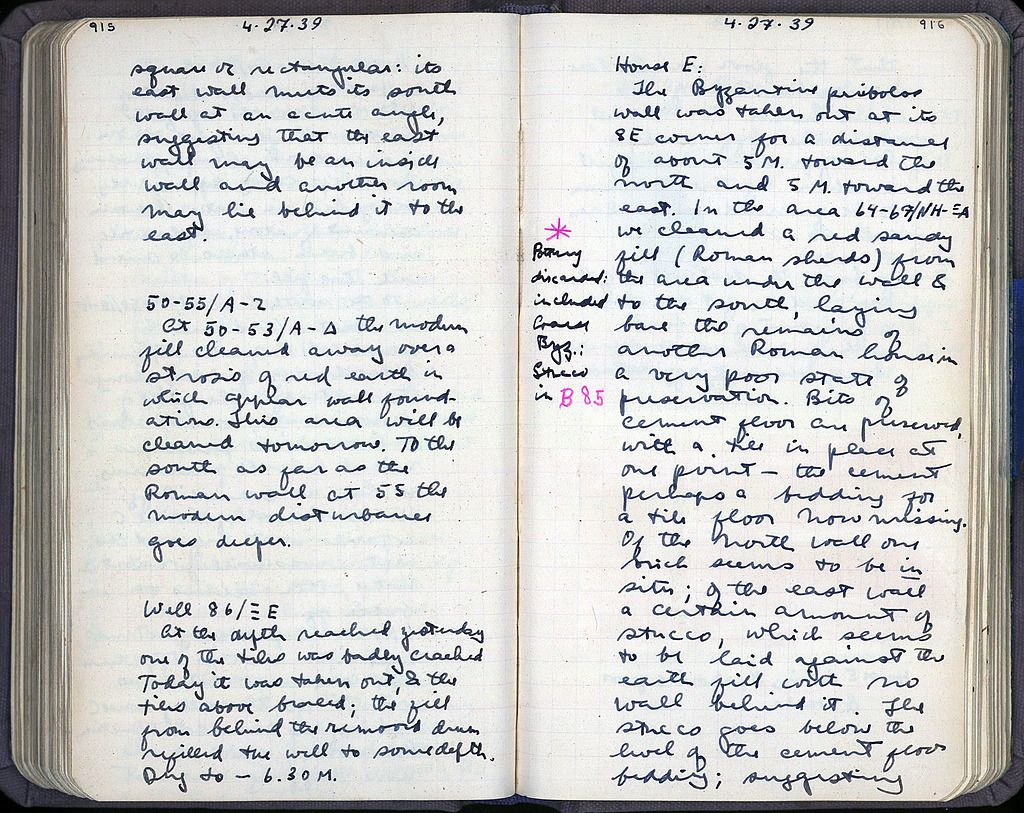 915
4.27.39
square or rectangular: its
east wall meets its south
wall at an acute angle,
suggesting that the east
wall may be an inside
wall and another room
may lie behind it to the
east.
50-55/A-2
At 50-53/A-Δ the modern
fill cleaned away over a
strosis of red earth in
which appear wall found-
ations. This area will be
cleaned tomorrow. To the
south as far as the
Roman wall at 55 the
modern disturbance
goes deeper.
Well 86/Ξ E
At the depth reached yesterday
one of the tiles was badly cracked
Today it was taken out, & the
tiles above braced; the fill
from behind the removed drum
refilled the well to some depth.
Dug to – 6.30 M.
4.27.39
916
House E:
The Byzantine peribolos
wall was taken out at its
SE corner for a distance
of about 5 M. toward the
north and 5 M. toward the
east. In the area 64-67/NH-ΞA
we cleaned a red sandy
fill (Roman sherds) from
the area under the wall &
to the south, laying
bare the remains of
another Roman house in
a very poor state of
preservation. Bits of
cement floor are preserved,
with a tile in place at
one point – the cement
perhaps a bedding for
a tile floor now missing.
Of the north wall one
brick seems to be in
situ; of the east wall
a certain amount of
stucco, which seems
to be laid against the
earth fill with no
wall behind it. The
stucco goes below the
level of the cement floor
bedding; suggesting
*
Pottery
discarded:
included
Coarse
Byz.:
Stucco
in B 85